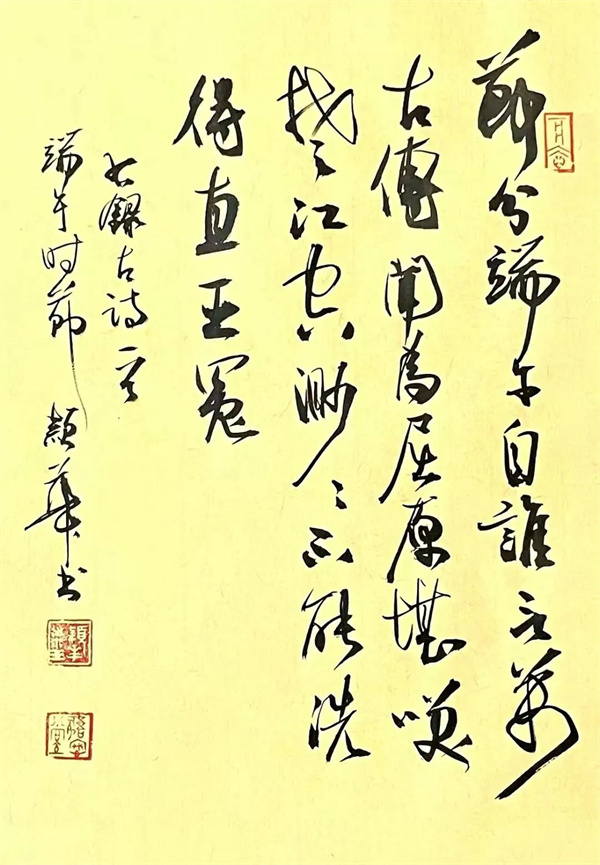 節分端午自誰言萬
古傳聞為屈原堪笑
楚江空渺々不能洗
得直臣冤
书錄古诗一首
端午时節 穎華书